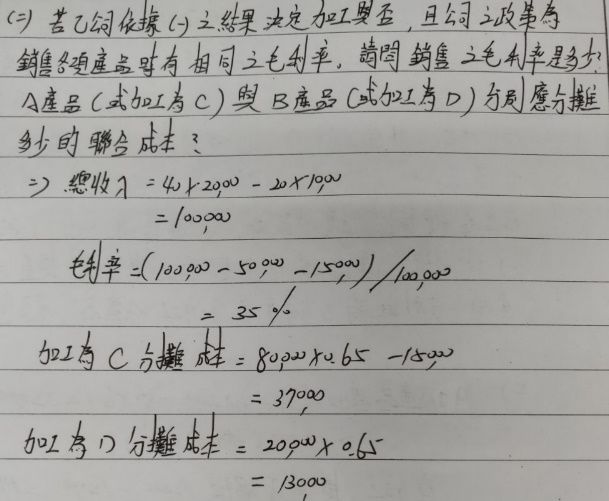 (二) 若乙公司依據(一)之結果決定加工與否，且公司之政策為
銷售各項產品時有相同之毛利率。請問銷售之毛利率是多少?
A產品(或加工為C)與B產品(或加工為D)分別應分攤
多少的聯合成本?
=> 總收入 = 40 x 20,00 - 20 x 10,00
= 100,000
毛利率 = (100,000 - 50,000 - 15,000) / 100,000
= 35 %
加工為 C 分攤成本 = 80,000 x 0.65 - 15,000
= 37,000
加工為 D 分攤成本 = 20,000 x 0.65
= 13,000